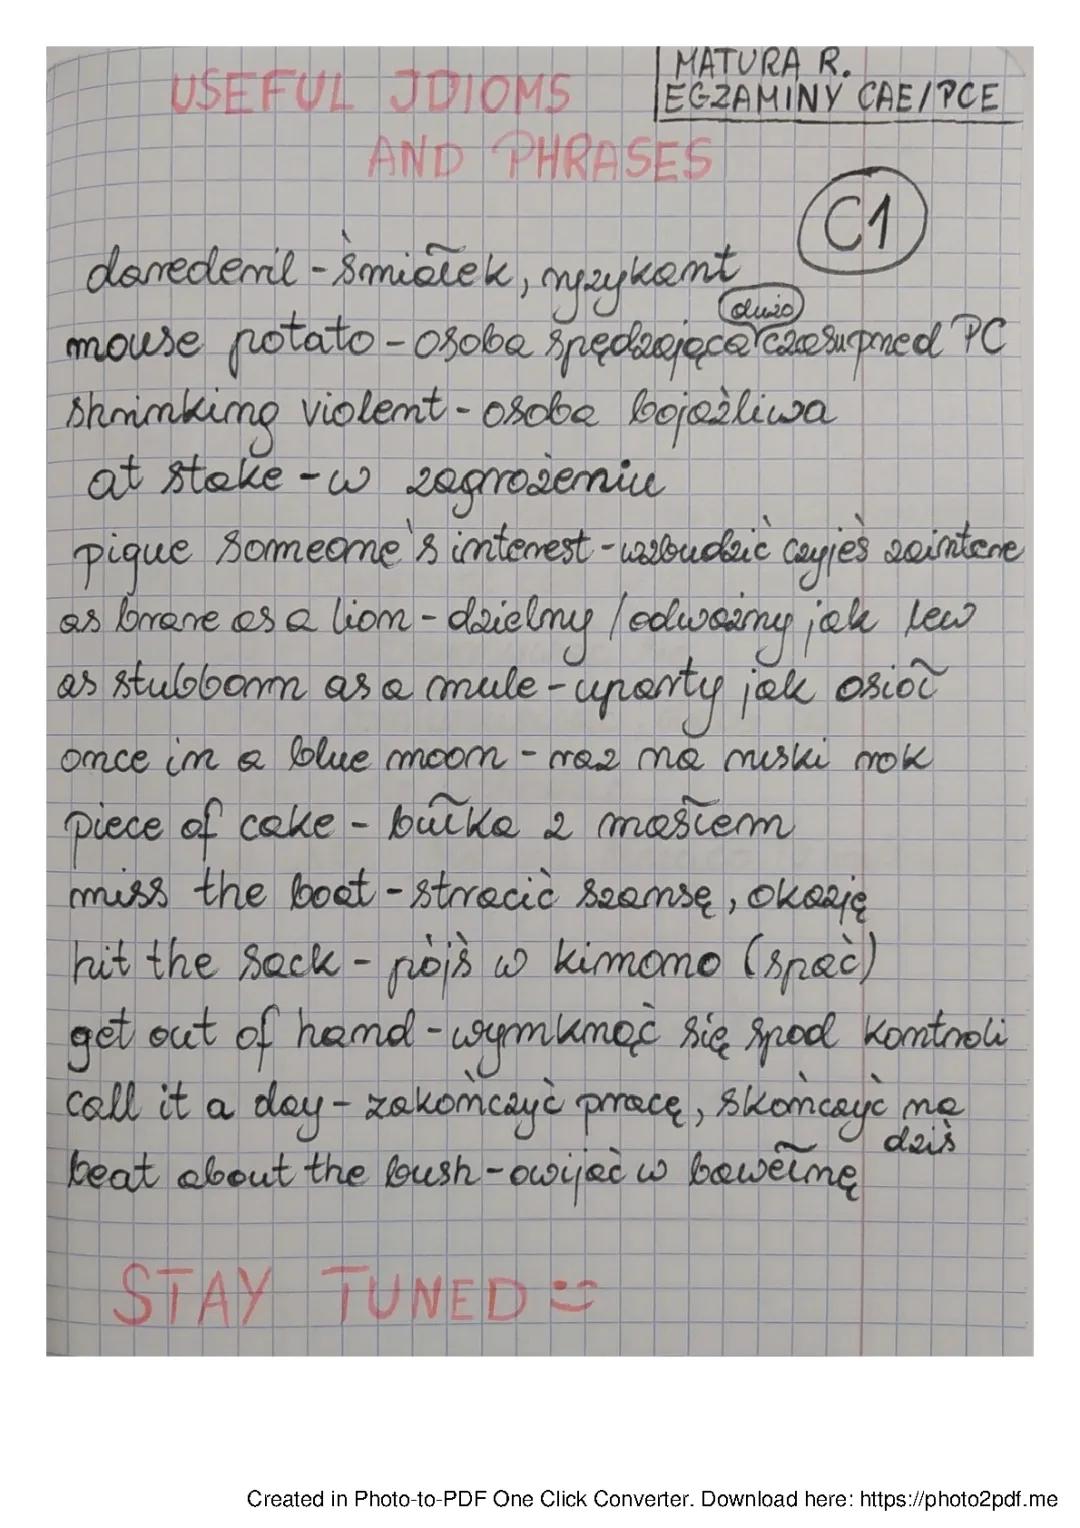 MATURA R.
USEFUL IDIOMS
EGZAMINY CAE/PCE
AND PHRASES
C1
daredevil - śmiałek, ryzykant
mouse potato - osoba spędzająca dużo czasu przed PC
shrinking violent - osoba bojaźliwa
at stake - w zagrożeniu
pique someone's interest - wzbudzić czyjeś zaintere
as brave as a lion - dzielny / odważny jak lew
as stubborn as a mule - uparty jak osioł
once in a blue moon - raz na ruski rok
piece of cake - bułka z masłem
miss the boat - stracić szansę, okazję
hit the sack - pójś w kimono (spać)
get out of hand - wymknąć się spod kontroli
call it a day - zakończyć pracę, skończyć na
dziś
beat about the bush - owijać w bawełnę
STAY TUNED :)
Created in Photo-to-PDF One Click Converter. Download here: https://photo2pdf.me